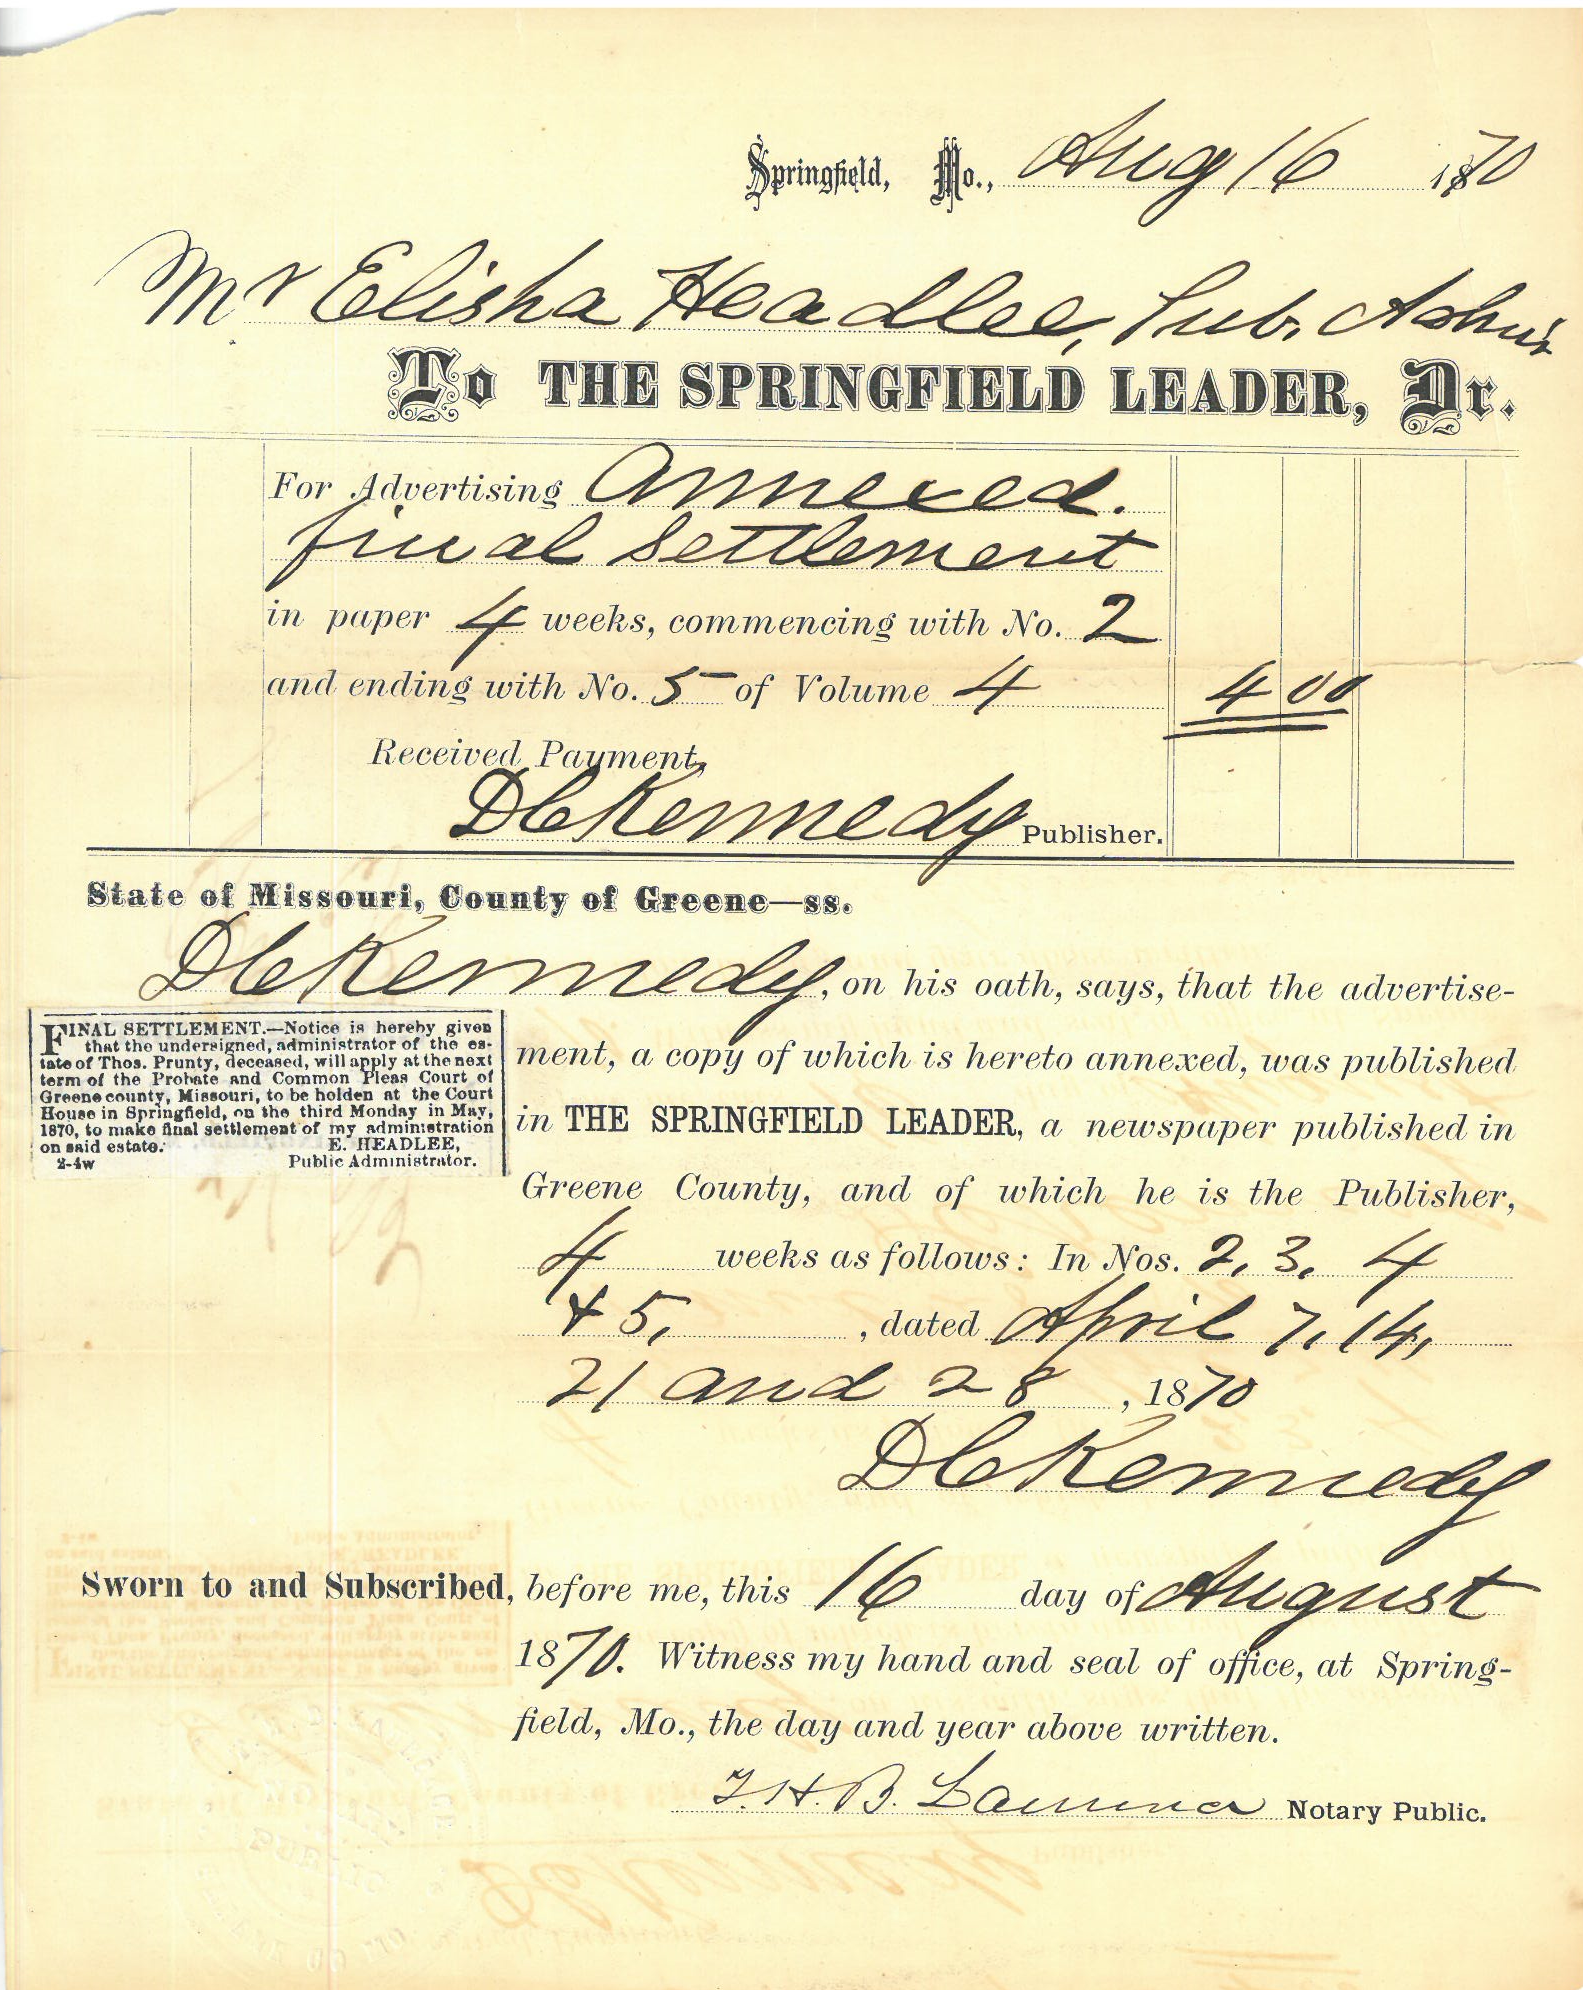 Springfield, Mo., Aug 16 1870
Mr Elisha Headlee, Pub. Admr
To THE SPRINGFIELD LEADER, Dr.
For Advertising Annexed.
final Settlement
in paper 4 weeks, commencing with No. 2
and ending with No. 5 of Volume 4 4 00
Received Payment,
D C Kennedy Publisher.
State of Missouri, County of Greene—ss.
D C Kennedy, on his oath, says, that the advertise-
ment, a copy of which is hereto annexed, was published
in THE SPRINGFIELD LEADER, a newspaper published in
Greene County, and of which he is the Publisher,
4 weeks as follows: In Nos. 2, 3, 4
& 5, , dated April 7, 14,
21 and 28 , 1870
D C Kennedy
FINAL SETTLEMENT.—Notice is hereby given
that the undersigned, administrator of the es-
tate of Thos. Prunty, deceased, will apply at the next
term of the Probate and Common Pleas Court of
Greene county, Missouri, to be holden at the Court
House in Springfield, on the third Monday in May,
1870, to make final settlement of my administration
on said estate. E. HEADLEE,
2-4w Public Administrator.
Sworn to and Subscribed, before me, this 16 day of August
1870. Witness my hand and seal of office, at Spring-
field, Mo., the day and year above written.
H. B. Notary Public.